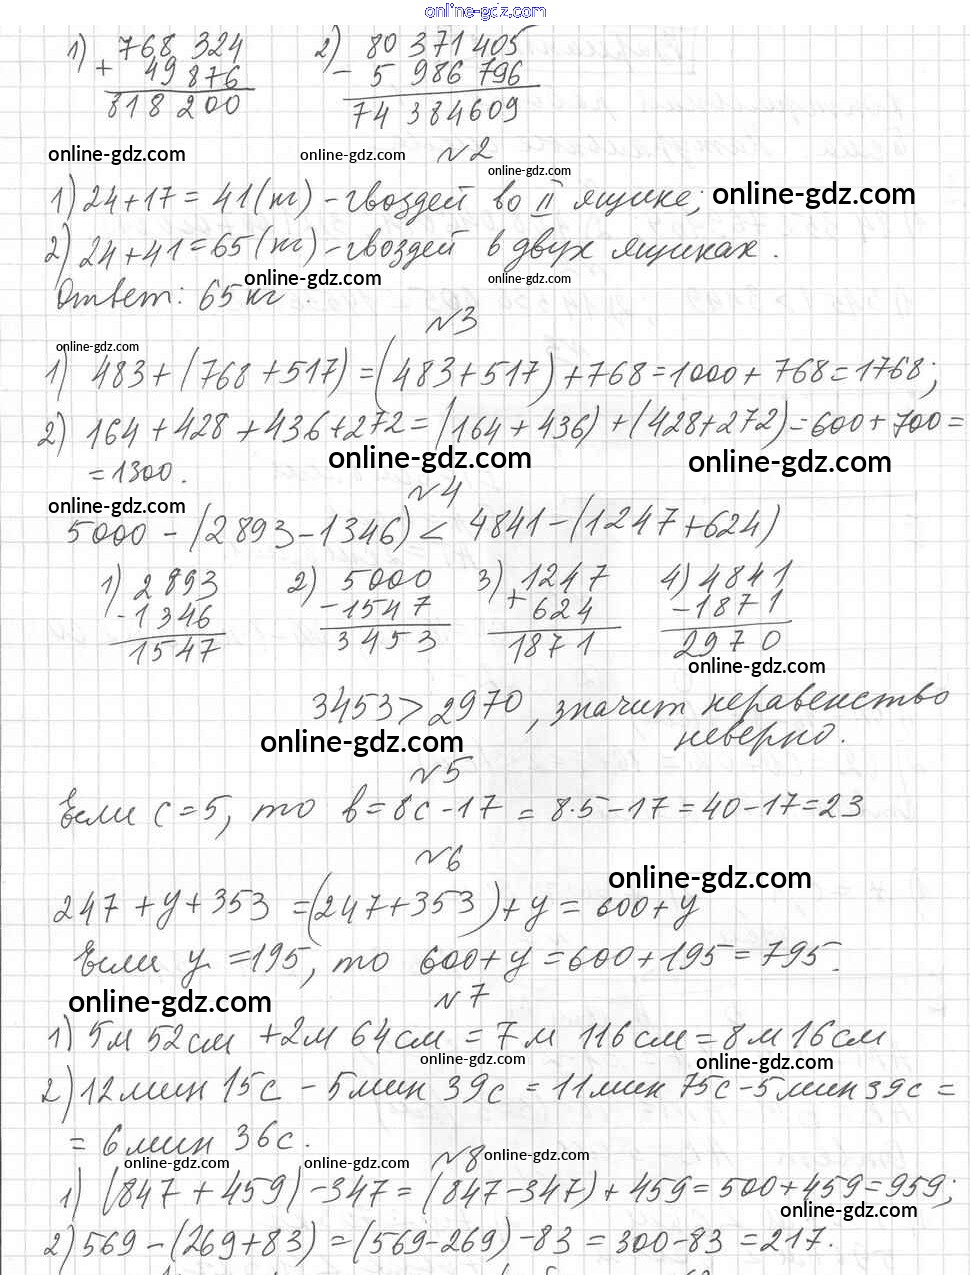 online-gdz.com
1) 768 324 2) 80 371 405
+ 49 876 - 5 986 796
818 200 74 384609
online-gdz.com online-gdz.com №2
online-gdz.com
1) 24+17=41(кг) - гвоздей во II ящике; online-gdz.com
2) 24+41=65(кг) - гвоздей в двух ящиках.
online-gdz.com online-gdz.com
Ответ: 65 кг.
№3
online-gdz.com
1) 483+(768+517)=(483+517)+768=1000+768=1768;
2) 164+428+436+272=(164+436)+(428+272)=600+700=
online-gdz.com online-gdz.com
=1300.
№4
online-gdz.com
5000-(2893-1346)<4841-(1247+624)
1) 2893 2) 5000 3) 1247 4) 4841
-1346 -1547 +624 -1871
1547 3453 1871 2970
online-gdz.com
3453>2970, значит неравенство
неверно.
online-gdz.com
№5
Если c=5, то b=8c-17=8·5-17=40-17=23
№6
online-gdz.com
247+y+353=(247+353)+y=600+y
Если y=195, то 600+y=600+195=795.
online-gdz.com №7
1) 5м 52см+2м 64см=7м 116см=8м 16см
online-gdz.com online-gdz.com
2) 12мин 15с - 5мин 39с = 11мин 75с-5мин 39с=
=6мин 36с.
№8 online-gdz.com
online-gdz.com online-gdz.com
1) (847+459)-347=(847-347)+459=500+459=959;
online-gdz.com
2) 569-(269+83)=(569-269)-83=300-83=217.